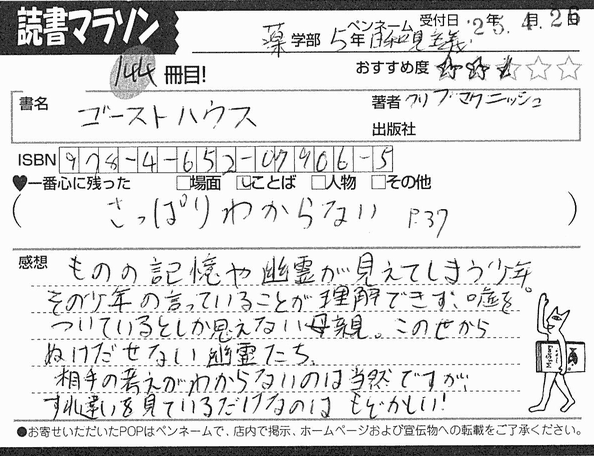 読書マラソン
薬学部 5年 ペンネーム 日和見主義 受付日 '25年 4月 26日
144冊目!
おすすめ度 ★★★☆☆
書名 ゴーストハウス
著者 クリブマクニッシュ
出版社
ISBN 978-4-652-07906-5
♥一番心に残った □場面 ☑ことば □人物 □その他
( さっぱりわからない P.37 )
感想 ものの記憶や幽霊が見えてしまう少年。
その少年の言っていることが理解できず、嘘を
ついているとしか思えない母親。この世から
ぬけだせない幽霊たち。
相手の考えがわからないのは当然ですが、
すれ違いを見ているだけなのはもどかしい!
●お寄せいただいたPOPはペンネームで、店内で掲示、ホームページおよび宣伝物への転載をご了承ください。